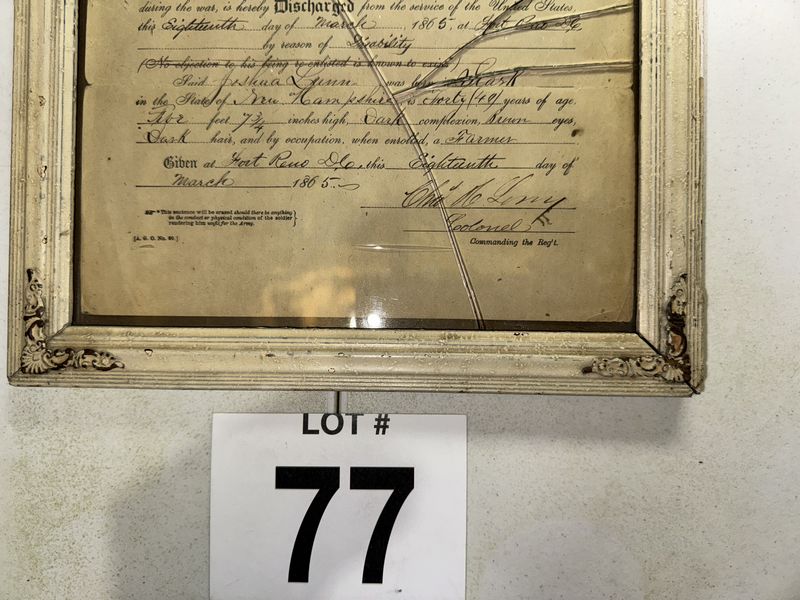 during the war, is hereby Discharged from the service of the United States,
this Eighteenth day of March, 1865, at Fort Reno D.C.
by reason of Disability
(No objection to his being re-enlisted is known to exist.)
Said Joshua Lunn was born in Stark
in the State of New Hampshire, is Forty (40) years of age,
Five feet 7 3/4 inches high, Dark complexion, Brown eyes,
Dark hair, and by occupation, when enrolled, a Farmer
Given at Fort Reno D.C., this Eighteenth day of
March 1865.
Chas H
Colonel
Commanding the Reg't.
*This sentence will be erased should there be anything
in the conduct or physical condition of the soldier
rendering him unfit for the Army.
[A. G. O. No. 99.]
LOT #
77